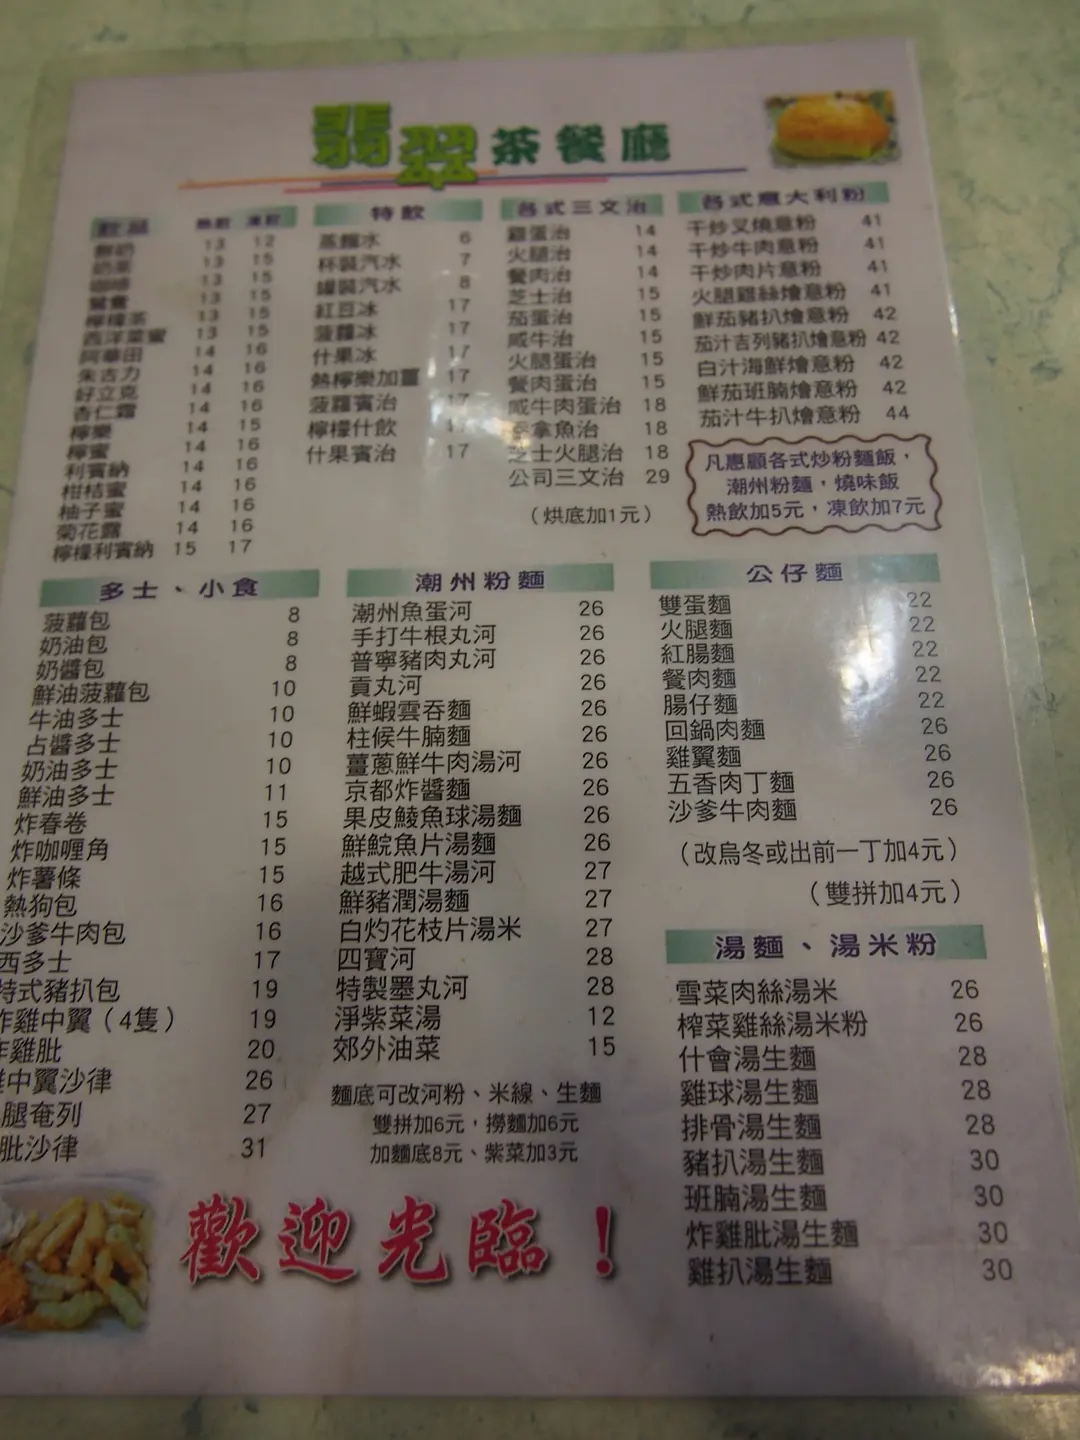 翡翠茶餐廳
飲品 熱飲 凍飲
鮮奶 13 12
奶茶 13 15
咖啡 13 15
鴛鴦 13 15
檸檬茶 13 15
西洋菜蜜 13 15
阿華田 14 16
朱古力 14 16
好立克 14 16
杏仁霜 14 16
檸樂 14 15
檸蜜 14 16
利賓納 14 16
柑桔蜜 14 16
柚子蜜 14 16
菊花露 14 16
檸檬利賓納 15 17
特飲
蒸餾水 6
杯裝汽水 7
罐裝汽水 8
紅豆冰 17
菠蘿冰 17
什果冰 17
熱檸樂加薑 17
菠蘿賓治 17
檸檬什飲 17
什果賓治 17
各式三文治
雞蛋治 14
火腿治 14
餐肉治 14
芝士治 15
茄蛋治 15
咸牛治 15
火腿蛋治 15
餐肉蛋治 15
咸牛肉蛋治 18
吞拿魚治 18
芝士火腿治 18
公司三文治 29
（烘底加1元）
各式意大利粉
干炒叉燒意粉 41
干炒牛肉意粉 41
干炒肉片意粉 41
火腿雞絲燴意粉 41
鮮茄豬扒燴意粉 42
茄汁吉列豬扒燴意粉 42
白汁海鮮燴意粉 42
鮮茄班腩燴意粉 42
茄汁牛扒燴意粉 44
凡惠顧各式炒粉麵飯，
潮州粉麵，燒味飯
熱飲加5元，凍飲加7元
多士、小食
菠蘿包 8
奶油包 8
奶醬包 8
鮮油菠蘿包 10
牛油多士 10
占醬多士 10
奶油多士 10
鮮油多士 11
炸春卷 15
炸咖喱角 15
炸薯條 15
熱狗包 16
沙爹牛肉包 16
西多士 17
特式豬扒包 19
炸雞中翼（4隻） 19
炸雞肶 20
雞中翼沙律 26
腿奄列 27
肶沙律 31
潮州粉麵
潮州魚蛋河 26
手打牛根丸河 26
普寧豬肉丸河 26
貢丸河 26
鮮蝦雲吞麵 26
柱候牛腩麵 26
薑蔥鮮牛肉湯河 26
京都炸醬麵 26
果皮鯪魚球湯麵 26
鮮鯇魚片湯麵 26
越式肥牛湯河 27
鮮豬潤湯麵 27
白灼花枝片湯米 27
四寶河 28
特製墨丸河 28
淨紫菜湯 12
郊外油菜 15
麵底可改河粉、米線、生麵
雙拼加6元，撈麵加6元
加麵底8元、紫菜加3元
公仔麵
雙蛋麵 22
火腿麵 22
紅腸麵 22
餐肉麵 22
腸仔麵 22
回鍋肉麵 26
雞翼麵 26
五香肉丁麵 26
沙爹牛肉麵 26
（改烏冬或出前一丁加4元）
（雙拼加4元）
湯麵、湯米粉
雪菜肉絲湯米 26
榨菜雞絲湯米粉 26
什會湯生麵 28
雞球湯生麵 28
排骨湯生麵 28
豬扒湯生麵 30
班腩湯生麵 30
炸雞肶湯生麵 30
雞扒湯生麵 30
歡迎光臨！